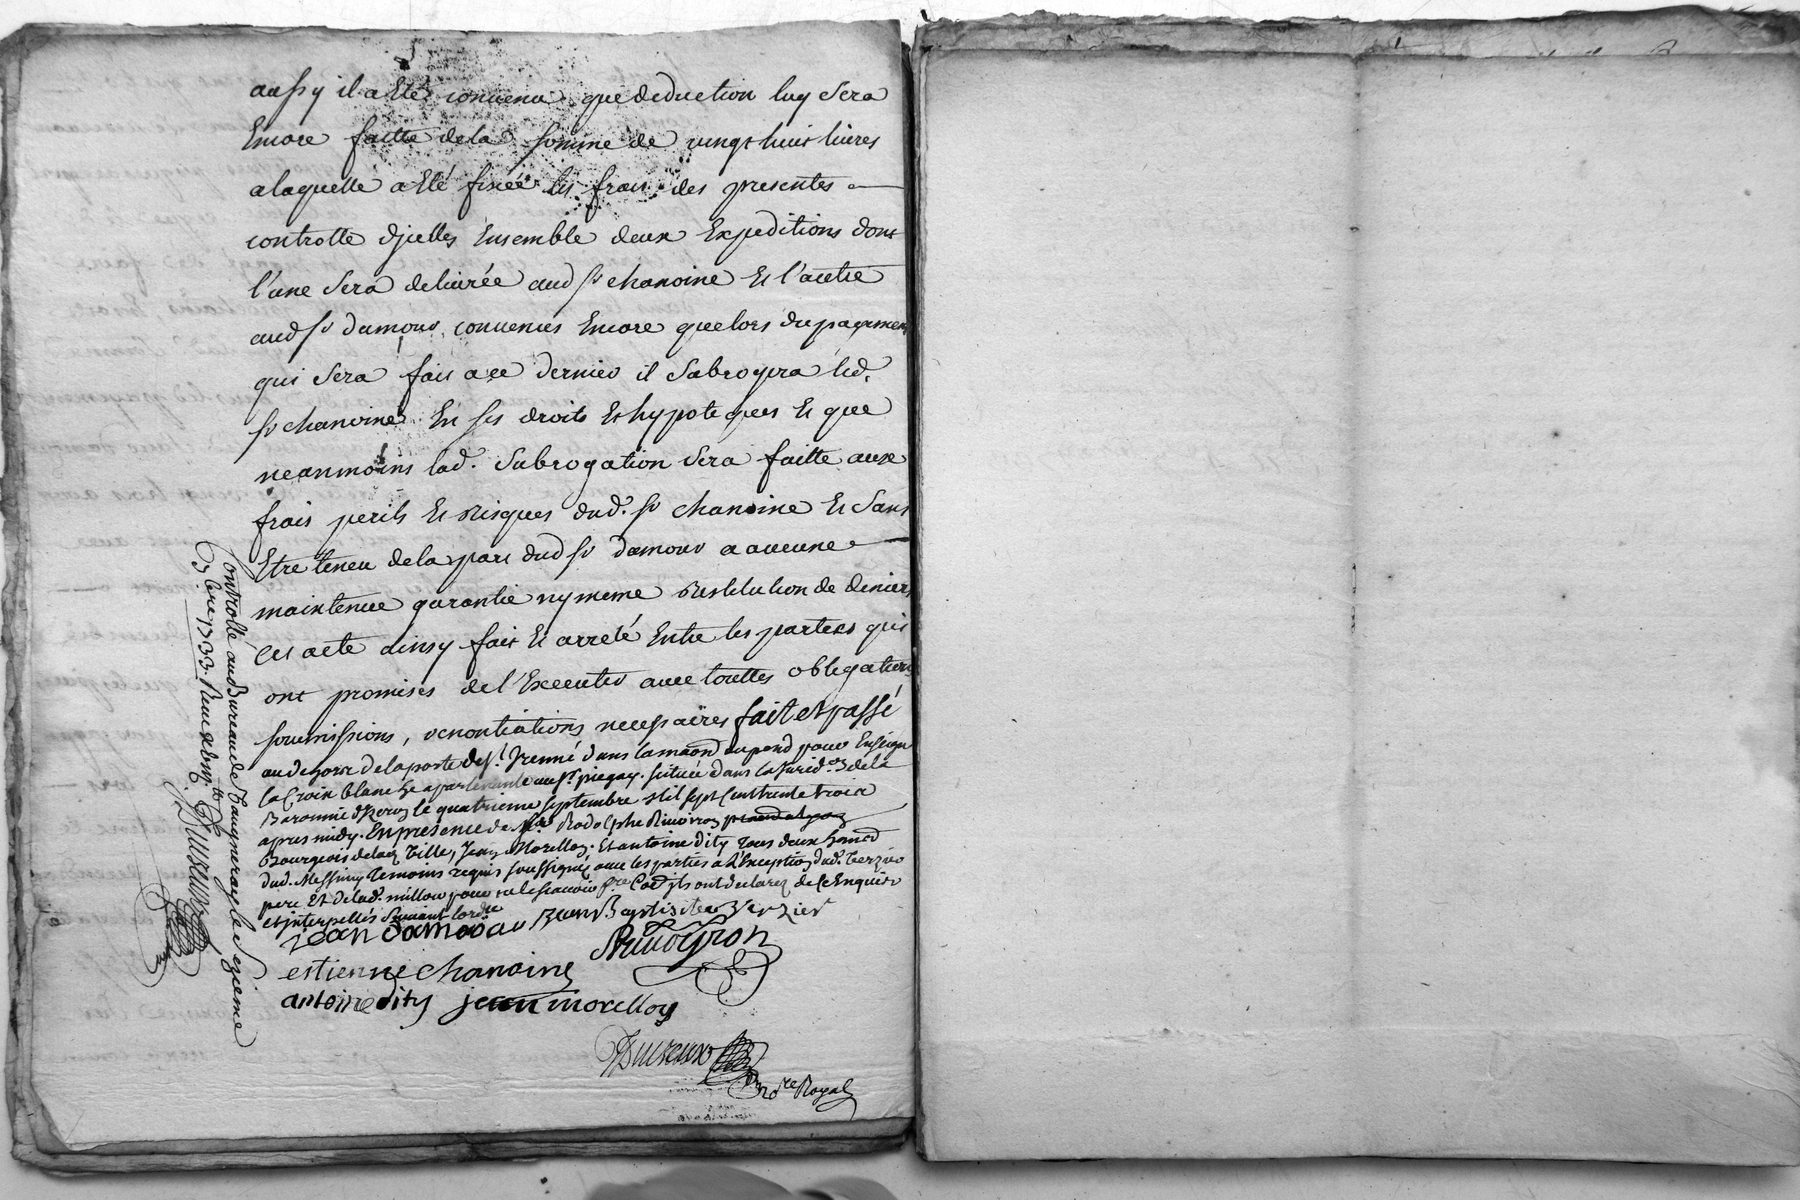 aussy il a Eté convenu que deduction luy Sera
Encore faitte de la somme de vingt huit livres
a laquelle a Eté fixée les frais des presentes
controlle d'jcelles Ensemble deux Expeditions dont
l'une Sera delivrée aud sr chanoine Et l'autre
aud sr damour, convenues Encore que lors du payement
qui Sera fait a ce dernier il Subrogera led.
sr chanoine En ses droits Et hypoteques Et que
neanmoins lad. Subrogation Sera faitte aux
frais perils Et Risques dud. sr chanoine Et Sans
Etre tenu de la part dud sr damour a aucune
maintenue garantie ny meme Restitution de deniers
Cet acte ainsy fait Et arreté Entre les parties qui
ont promises de l'Executer avec touttes obligations
soumissions, renontiations necessaires fait et passé
au dehors de la porte de st. Jrenné dans la maon au pend pour Enseigne
la Croix blanche apartenante au sr. piegay. scituée dans la Jurid.on de la
Baronnie le quatrieme septembre Mil sept Cent trente trois
apres midy. En presence de Rodolphe
Bourgeois de lad. Ville, Jean Morellon Et antoine dity tous deux
dud. Messimy temoins requis soussignés avec les parties a l'Exception dud. Verzier
pere Et de lad. millou pour ne le scavoir fre. Co[...] jls ont declarez de ce Enquis
et interpellés Suivant lord.ce
jean damour Jean Baptiste Verzier
estienne chanoine
antoine dity jean morellon
re Royal
Controllé au Bureau de Vaugneray le Sezieme
7bre 1733. Reçu